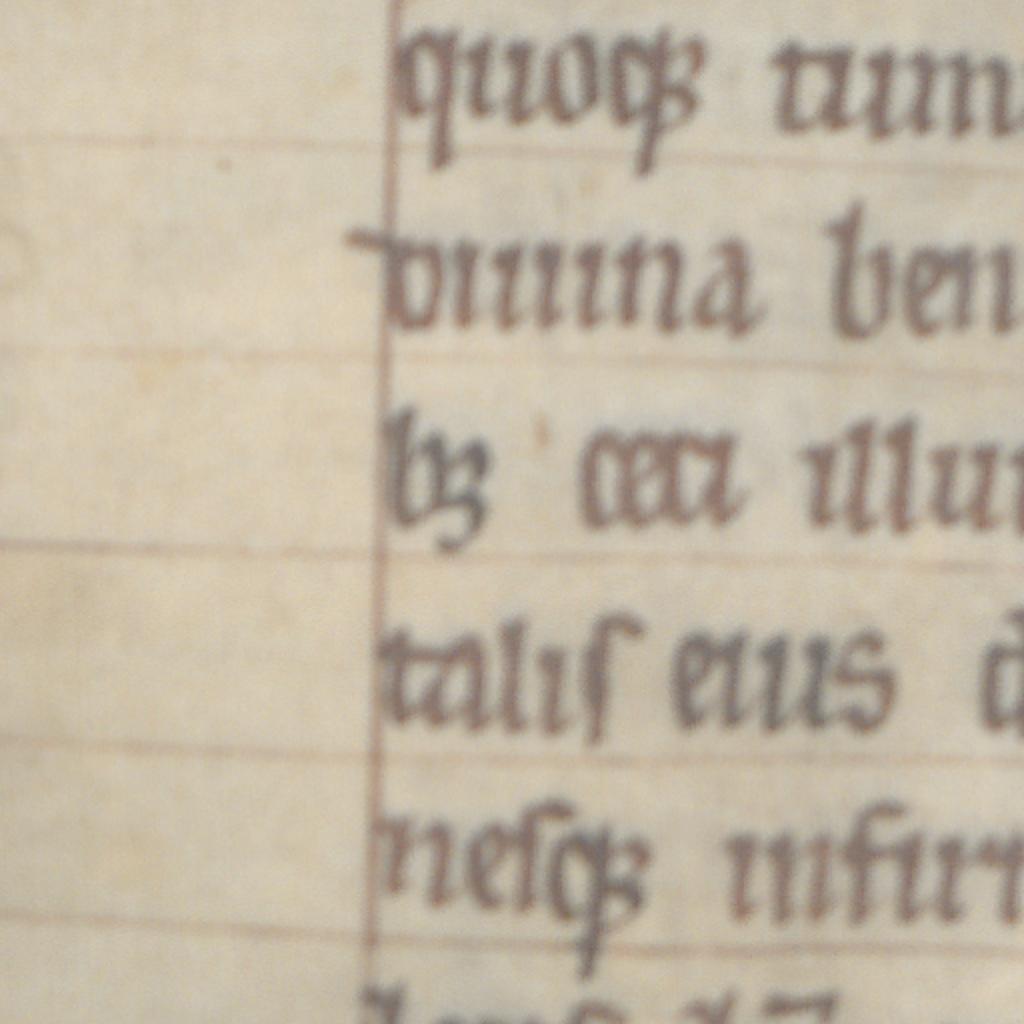 quoqꝫ tum
diuina ben
bꝫ ceci illu
taliſ eius d
neſqꝫ infir